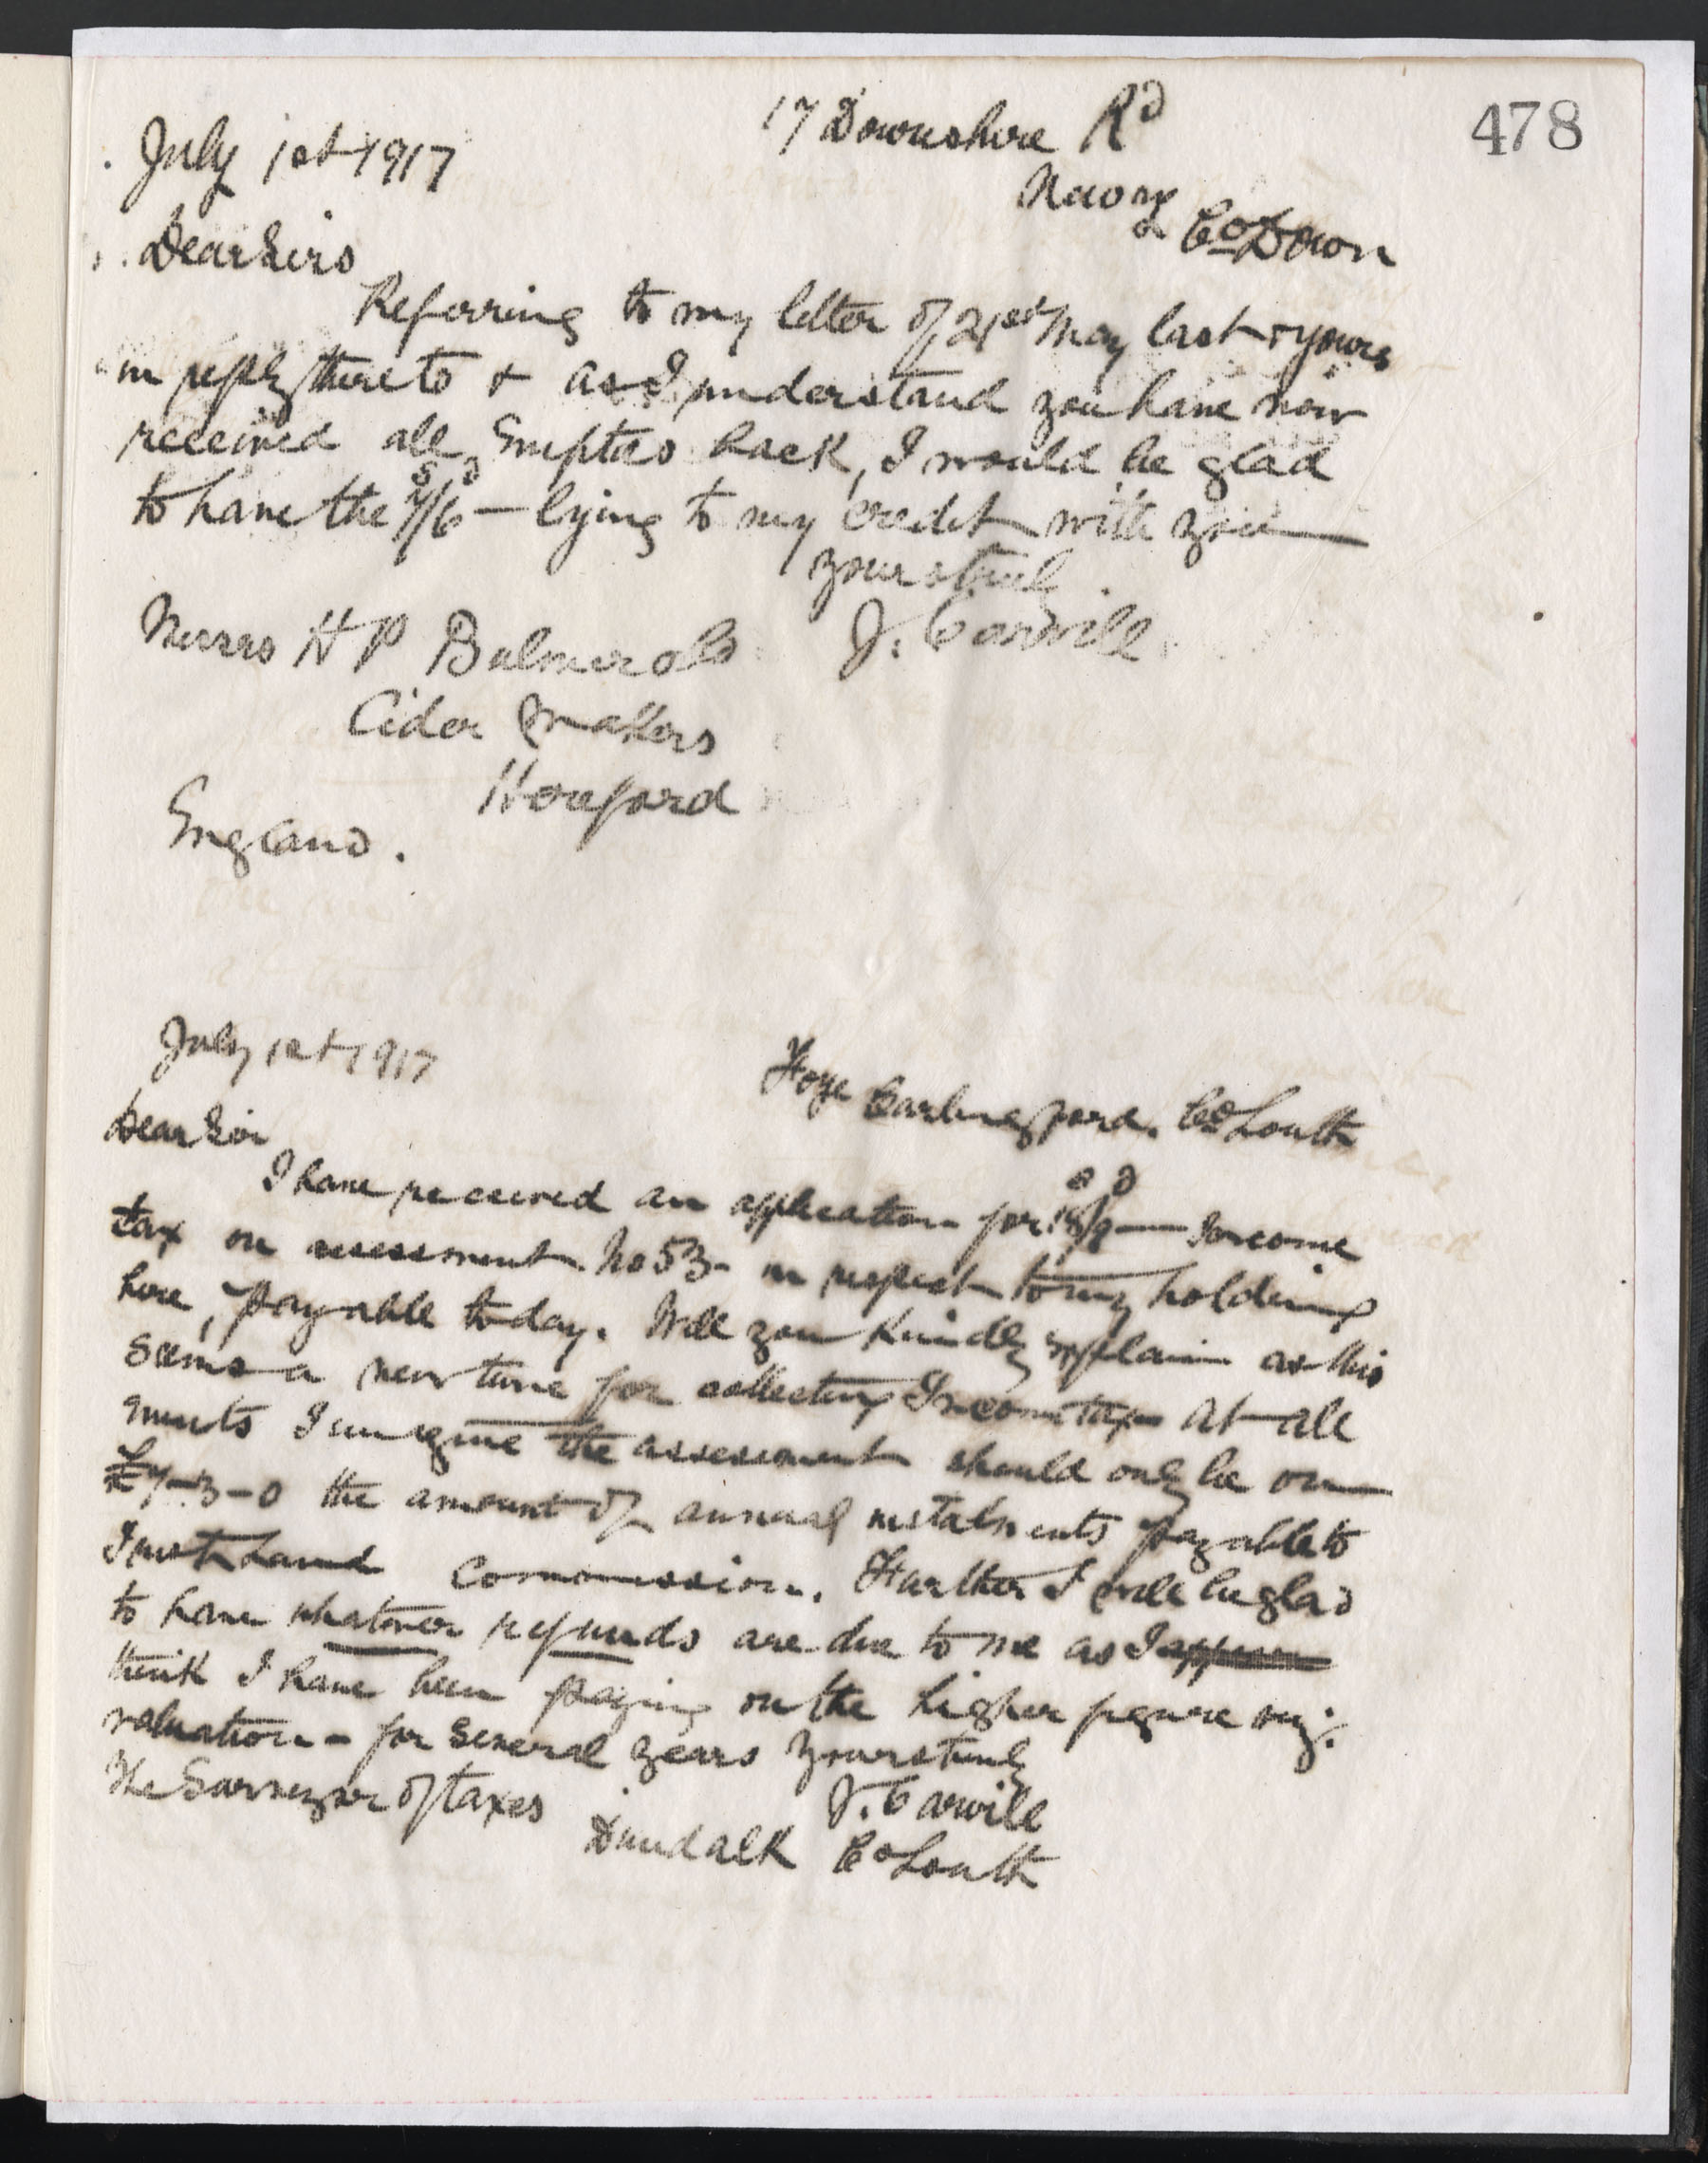 478
17 Downshire Rd
July 1st 1917
Newry
Co Down
Dear Sirs
Referring to my letter of 21st May last & yours
in reply thereto & as I understand you have now
received all Empties back, I would be glad
s d
to have the 7/6 — lying to my credit with you
Yours truly
J. Carvill
Messrs H P Bulmer & Co
Cider Makers
Hereford
England.
July 1st 1917
Foye Carlingford. Co Louth
Dear Sir
s d
I have received an application for 18/9 — Income
tax on assessment No 53 - in respect to my holding
here, payable today. Will you kindly explain as this
seems a new time for collecting Income tax At all
events I imagine the assessment should only be on
£7-3-0 the amount of annual instalments payable to
Irish Land Commission. Further I will be glad
to have whatever refunds are due to me as I
think I have been paying on the higher figure viz:
valuation - for several years Yours truly
J. Carvill
The Surveyor of taxes
Dundalk Co Louth